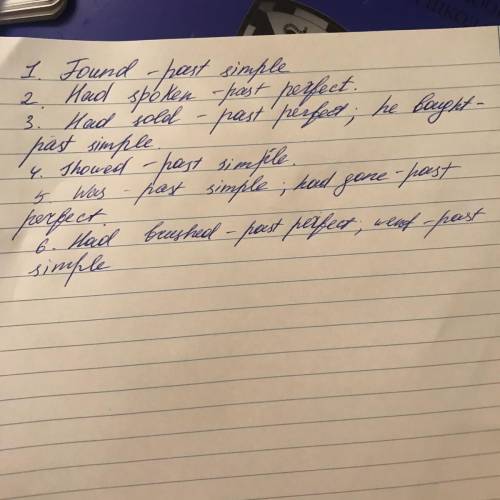 1. Found - past simple
2. Had spoken - past perfect.
3. Had sold - past perfect; he bought -
past simple.
4. Showed - past simple.
5. Was - past simple; had gone - past
perfect.
6. Had brushed - past perfect; went - past
simple